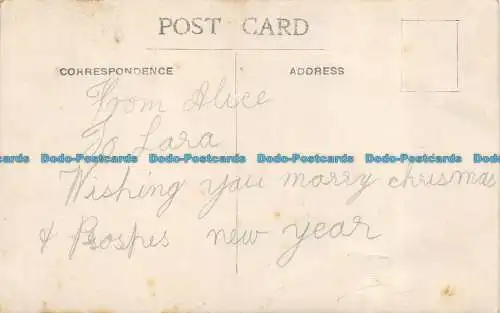 POST CARD
CORRESPONDENCE ADDRESS
From Alice
To Lara
Dodo-Postcards Dodo-Postcards Dodo-Postcards Dodo-Postcards
Wishing you marry chrismas
& Prospes new year